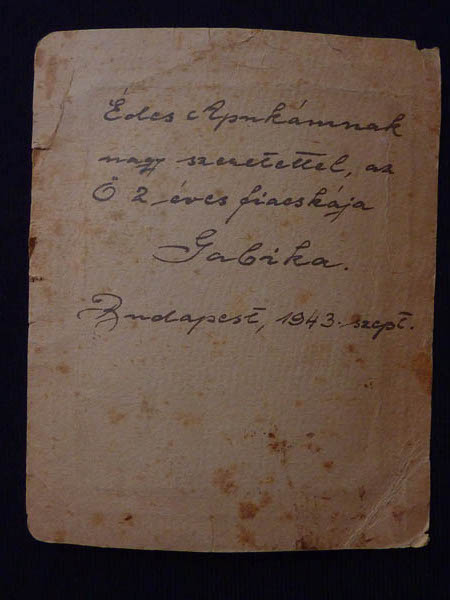 Édes Apukámnak
nagy szeretettel, az
Ő 2 éves fiacskája
Gabika.
Budapest, 1943. szept.